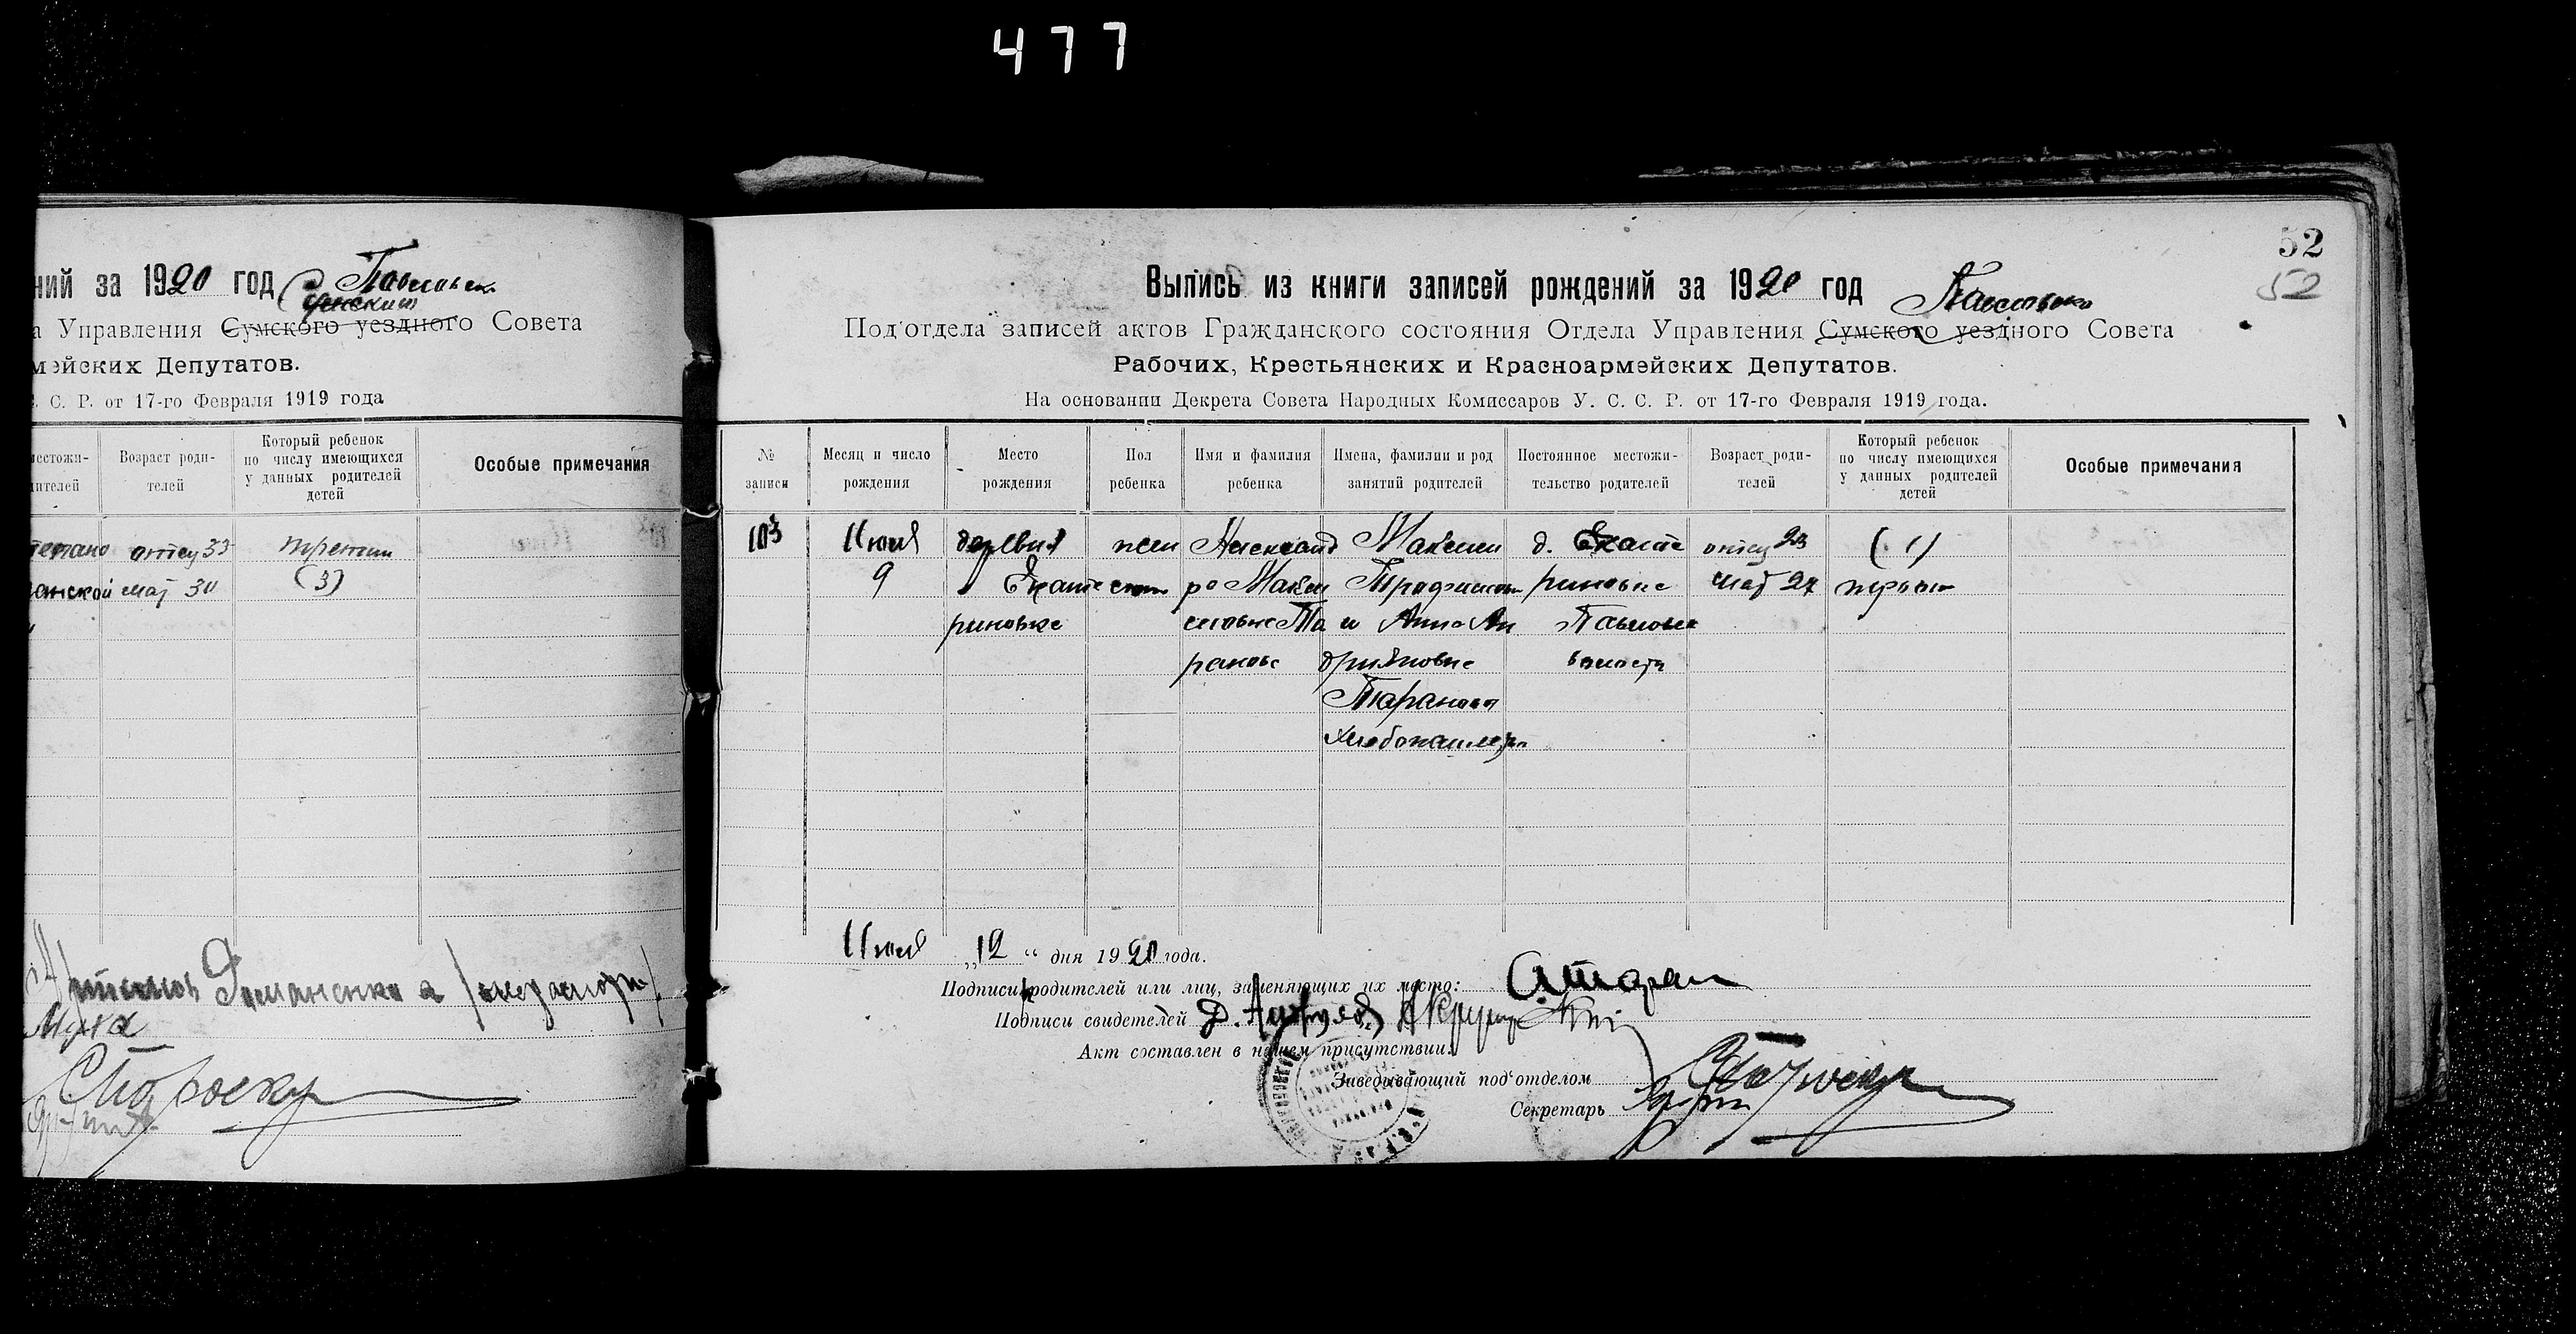 477
ний за 1920 год
а Управления Сумского уездного Совета
мейских Депутатов.
С. С. Р. от 17-го Февраля 1919 года
местожи-
дителей
Возраст роди-
телей
Который ребенок
по числу имеющихся
у данных родителей
детей
Особые примечания
отцу 33
мат 30
(3)
52
52
Выпись из книги записей рождений за 1920 год
Подотдела записей актов Гражданского состояния Отдела Управления Сумского уездного Совета
Рабочих, Крестьянских и Красноармейских Депутатов.
На основании Декрета Совета Народных Комиссаров У. С. С. Р. от 17-го Февраля 1919 года.
№
записи
Месяц и число
рождения
Место
рождения
Пол
ребенка
Имя и фамилия
ребенка
Имена, фамилии и род
занятий родителей
Постоянное местожи-
тельство родителей
Возраст роди-
телей
Который ребенок
по числу имеющихся
у данных родителей
детей
Особые примечания
103
Июля
9
деревня
риновке
жен
Александ
ра Макси
мовна Та
ранова
Максим
Трофимов
и Анна Ан
дриановна
Таранова
Хлебопашец
д. Екате
риновке
Павловск
волости
отцу 23
мат 27
(1)
первый
Июля „12“ дня 1920 года.
Подписи родителей или лиц, заменяющих их место:
Подписи свидетелей
Акт составлен в нашем присутствии:
Заведывающий под‘отделом
Секретарь